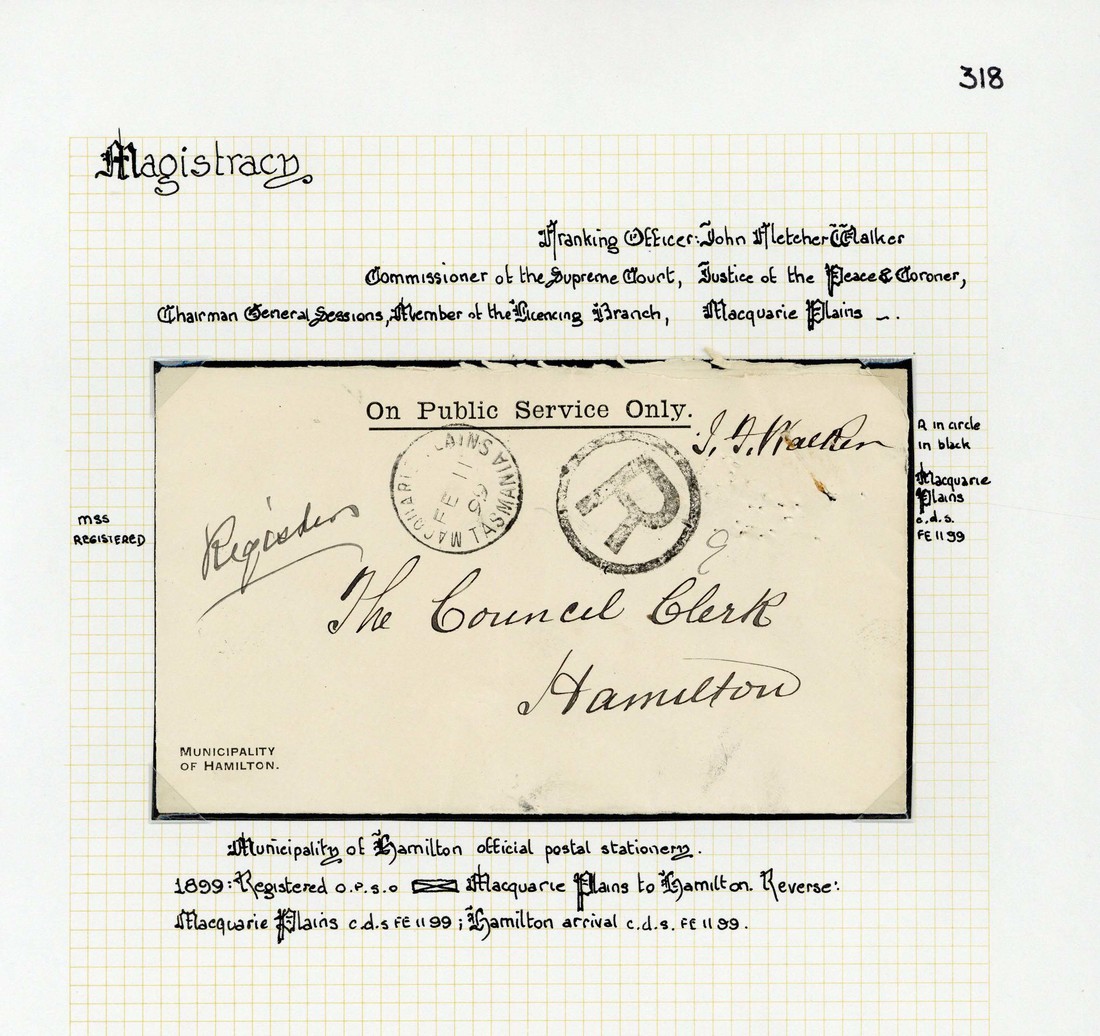 318
Magistracy
Franking Officer: John Fletcher Walker
Commissioner of the Supreme Court, Justice of the Peace & Coroner,
Chairman General Sessions, Member of the Licencing Branch, Macquarie Plains
On Public Service Only.
J. F. Walker
MACQUARIE PLAINS
FE 11
99
TASMANIA
R
R in circle
in black
Macquarie
Plains
c.d.s.
FE 11 99
mss
REGISTERED
Registered
The Council Clerk
Hamilton
MUNICIPALITY
OF HAMILTON.
Municipality of Hamilton official postal stationery.
1899: Registered O.P.S.O Macquarie Plains to Hamilton. Reverse:
Macquarie Plains c.d.s FE 11 99; Hamilton arrival c.d.s. FE 11 99.